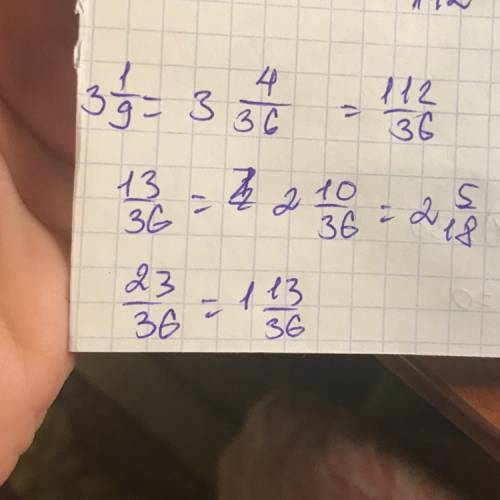 3 1/9 = 3 4/36 = 112/36
13/36 = 2 10/36 = 2 5/18
23/36 = 1 13/36